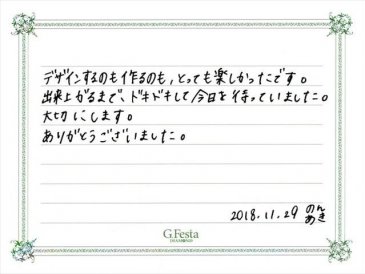 デザインするのも作るのも、とっても楽しかったです。
出来上がるまで、ドキドキして今日を待っていました。
大切にします。
ありがとうございました。
2018.11.29 のん
あき
G.Festa
DIAMOND